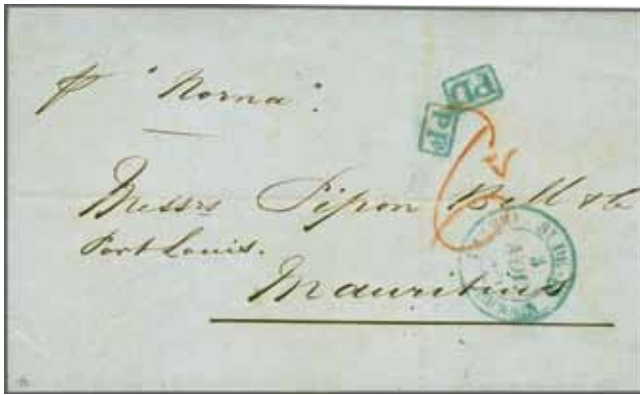 p "Norna".
PD
PF
Messrs Pipon Bell & Co
Port Louis.
Mauritius
3 AOUT